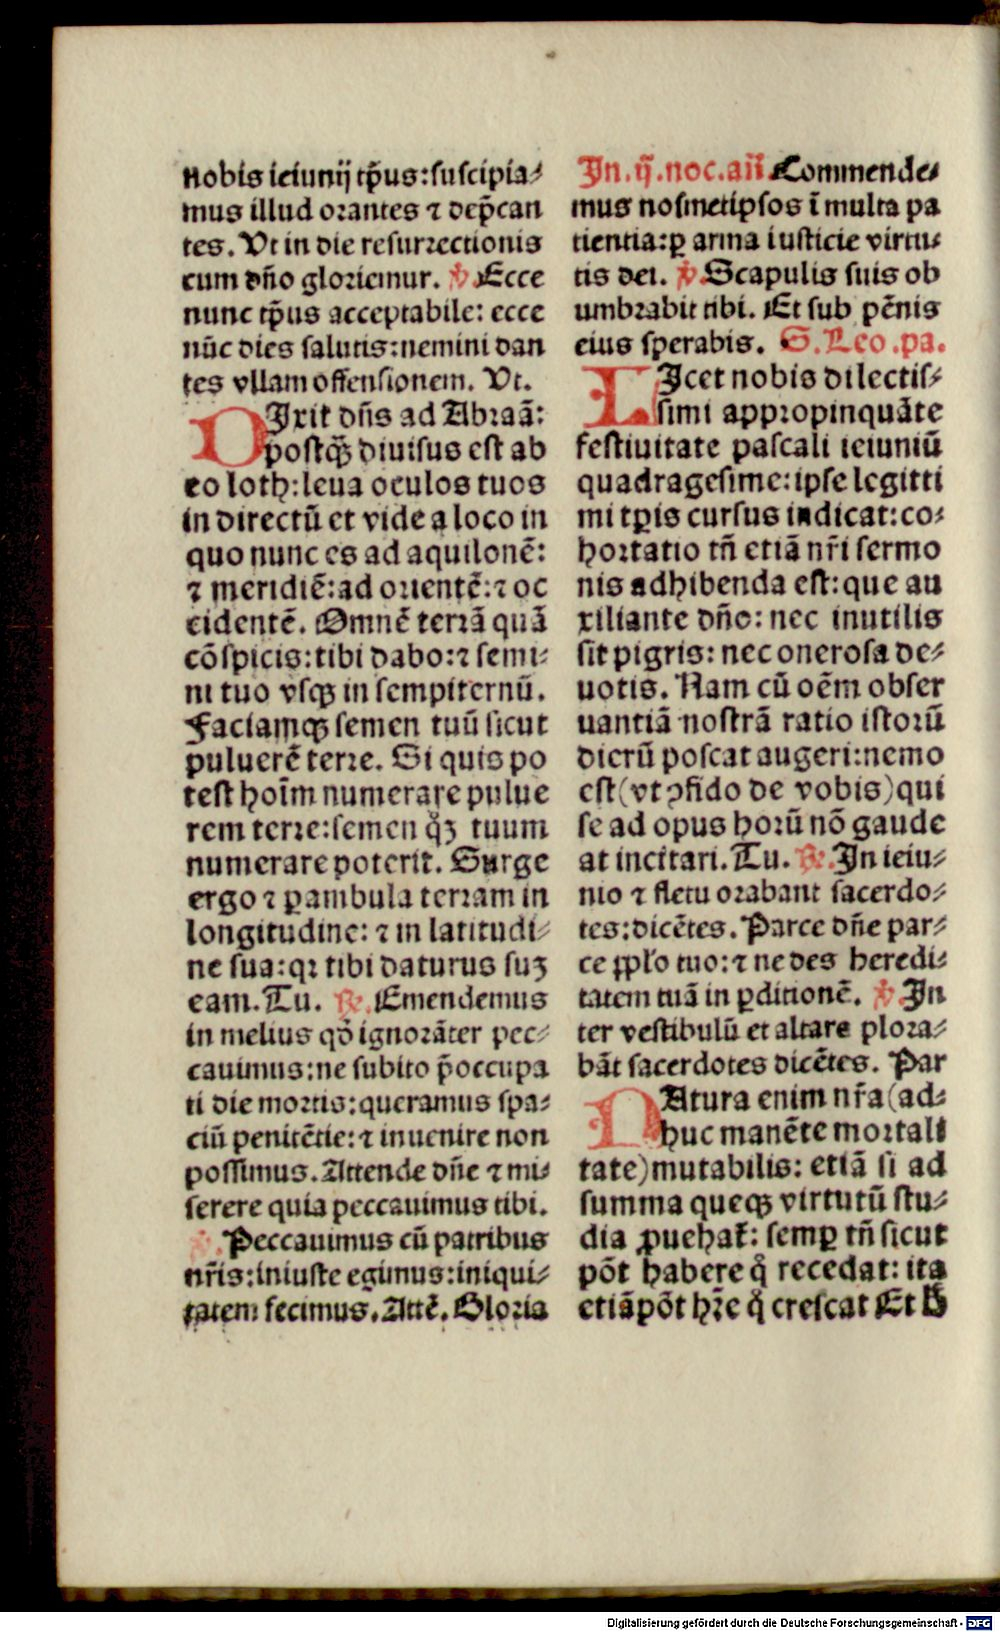 nobis ieiunij tp̄us:suscipia⸗
mus illud orantes ⁊ dep̄can
tes. Vt in die resurrectionis
cum dn̄o gloriemur. ℣. Ecce
nunc tp̄us acceptabile: ecce
nūc dies salutis:nemini dan
tes vllam offensionem. Vt.
DIxit dn̄s ad Abraā:
postq̄ꝫ diuisus est ab
eo loth:leua oculos tuos
in directū et vide a loco in
quo nunc es ad aquilonē:
⁊ meridiē:ad orientē:⁊ oc
cidentē. Omnē terrā quā
cōspicis:tibi dabo:⁊ semi⸗
ni tuo vsqꝫ in sempiternū.
Faciamqꝫ semen tuū sicut
puluerē terre. Si quis po
test hoīm numerare pulue
rem terre:semen qͦꝫ tuum
numerare poterit. Surge
ergo ⁊ ꝑambula terram in
longitudine: ⁊ in latitudi⸗
ne sua:qꝛ tibi daturus suꝫ
eam. Tu. ℟. Emendemus
in melius qð ignorāter pec⸗
cauimus:ne subito p̄occupa
ti die mortis:queramus spa⸗
ciū penitētie:⁊ inuenire non
possimus. Attende dn̄e ⁊ mi⸗
serere quia peccauimus tibi.
℣. Peccauimus cū patribus
nr̄is:iniuste egimus:iniqui⸗
tatem fecimus. Attē. Gloria
In. ij̄. noc. an̄ Commende⸗
mus nosmetipsos ī multa pa
tientia:ꝑ arma iusticie virtu⸗
tis dei. ℣. Scapulis suis ob
umbrabit tibi. Et sub pēnis
eius sperabis. S. Leo .pa.
LIcet nobis dilectis⸗
simi appropinquāte
festiuitate pascali ieiuniū
quadragesime:ipse legitti
mi tꝑis cursus indicat:co⸗
hortatio tn̄ etiā nr̄i sermo
nis adhibenda est:que au
xiliante dn̄o: nec inutilis
sit pigris: nec onerosa de⸗
uotis. Nam cū oēm obser
uantiā nostrā ratio istorū
dierū poscat augeri:nemo
est(vt ꝯfido de vobis)qui
se ad opus horū nō gaude
at incitari. Tu. ℟. In ieiu⸗
nio ⁊ fletu orabant sacerdo⸗
tes:dicētes. Parce dn̄e par⸗
ce ꝓpl̄o tuo:⁊ ne des heredi⸗
tatem tuā in ꝑditionē. ℣. In
ter vestibulū et altare plora⸗
bāt sacerdotes dicētes. Par
NAtura enim nr̄a(ad⸗
huc manēte mortali
tate)mutabilis: etiā si ad
summa queqꝫ virtutū stu⸗
dia ꝓuehat᷑: semꝑ tn̄ sicut
pōt habere qͦ recedat: ita
etiā pōt hr̄e qͦ crescat Et h̄
Digitalisierung gefördert durch die Deutsche Forschungsgemeinschaft - DFG